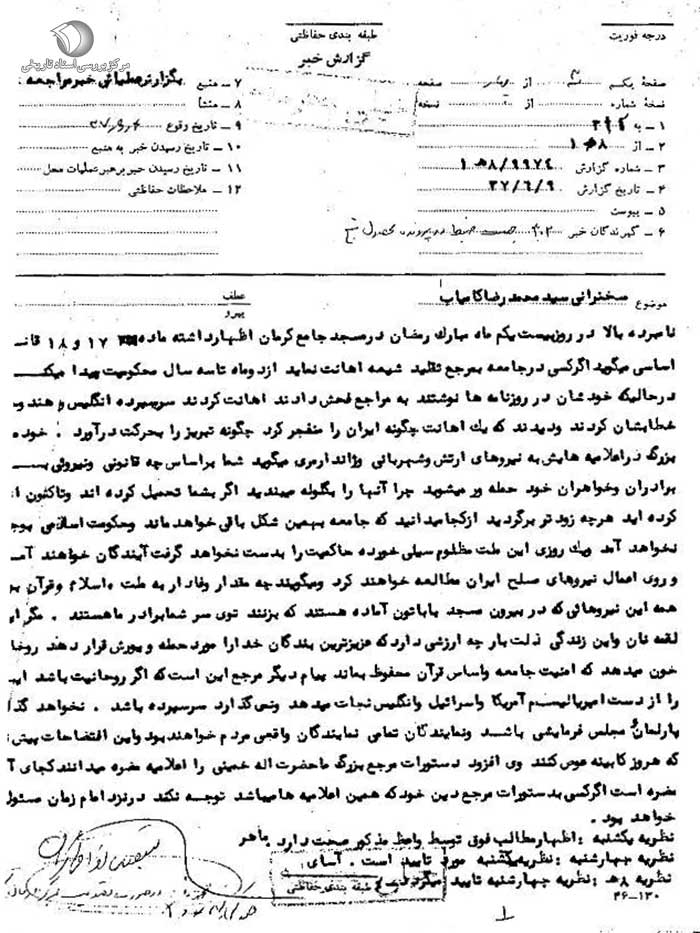 مرکز بررسی اسناد تاریخی
درجه فوریت
طبقه بندی حفاظتی
گزارش خبر
صفحه یکم از صفحه
نسخه شماره از نسخه
۱ – به
۲ – از ۸ ه‍ ۱
۳ – شماره گزارش ۸/۹۹۷۴ ه‍ ۱
۴ – تاریخ گزارش ۳۷/۶/۹
۵ – پیوست
۶ – گیرندگان خبر
۷ – منبع
۸ – منشأ
۹ – تاریخ وقوع
۱۰ – تاریخ رسیدن خبر به منبع
۱۱ – تاریخ رسیدن خبر برهبر عملیات محل
۱۲ – ملاحظات حفاظتی
موضوع سخنرانی سید محمد رضا کامیاب
عطف
پیرو
نامبرده بالا در روز بیست یکم ماه مبارک رمضان در مسجد جامع کرمان اظهار داشته ماده ۱۷ و ۱۸ قانـ
اساسی میگوید اگر کسی در جامعه بمرجع تقلید شیعه اهانت نماید از دو ماه تا سه سال محکومیت پیدا میکنـ
در حالیکه خودشان در روزنامه ها نوشتند به مراجع فحش دادند اهانت کردند سرسپرده انگلیس و هند و
خطابشان کردند و دیدند که یک اهانت چگونه ایران را منفجر کرد چگونه تبریز را بحرکت درآورد .
بزرگ در اعلامیه هایش به نیروهای ارتش و شهربانی و ژاندارمری میگوید شما بر اساس چه قانونی و نیروئی بـ
برادران و خواهران خود حمله ور میشوید چرا آنها را بگلوله میبندید اگر بشما تحمیل کرده اند و تاکنون
کرده اید هرچه زود تر برگردید از کجا میدانید که جامعه بهمین شکل باقی خواهد ماند و حکومت اسلامی بوجـ
نخواهد آمد و یک روزی این ملت مظلوم سیلی خورده حاکمیت را بدست نخواهد گرفت آیندگان خواهند آمـ
و روی اعمال نیروهای مسلح ایران مطالعه خواهند کرد و میگویند چه مقدار وفادار به ملت و اسلام و قرآن
همه این نیروهائی که در بیرون مسجد با باتون آماده هستند که بزنند توی سر شما برادر ما هستند .
لقمه نان و این زندگی ذلت بار چه ارزشی دارد که عزیزترین بندگان خدا را مورد حمله و یورش قرار دهد
خون میدهد که امنیت جامعه و اساس قرآن محفوظ بماند پیام دیگر مرجع این است که اگر روحانیت باشد
را از دست امپریالیسم آمریکا و اسرائیل و انگلیس نجات میدهد و نمی گذارد سرسپرده باشد . نخواهد گذا
پارلمان و مجلس فرمایشی باشد و نمایندگان تمامی نمایندگان واقعی مردم خواهند بود و این افتضاحات پیش
که هر روز کابینه عوض کنند وی افزود دستورات مرجع بزرگ ما حضرت اله خمینی را اعلامیه مضره میدانند کجای آ
مضره است اگر کسی بدستورات مرجع دین خود که همین اعلامیه ها میباشد توجه نکند در نزد امام زمان مسئول
خواهد بود .
نظریه یکشنبه : اظهار مطالب فوق توسط واعظ مذکور صحت دارد . ماهر
نظریه چهارشنبه : نظریه یکشنبه مورد تایید است . آسای
نظریه ۸ ه‍ : نظریه چهارشنبه تایید میگردد .
طبقه بندی حفاظتی
۳۶–۱۳۰
۱